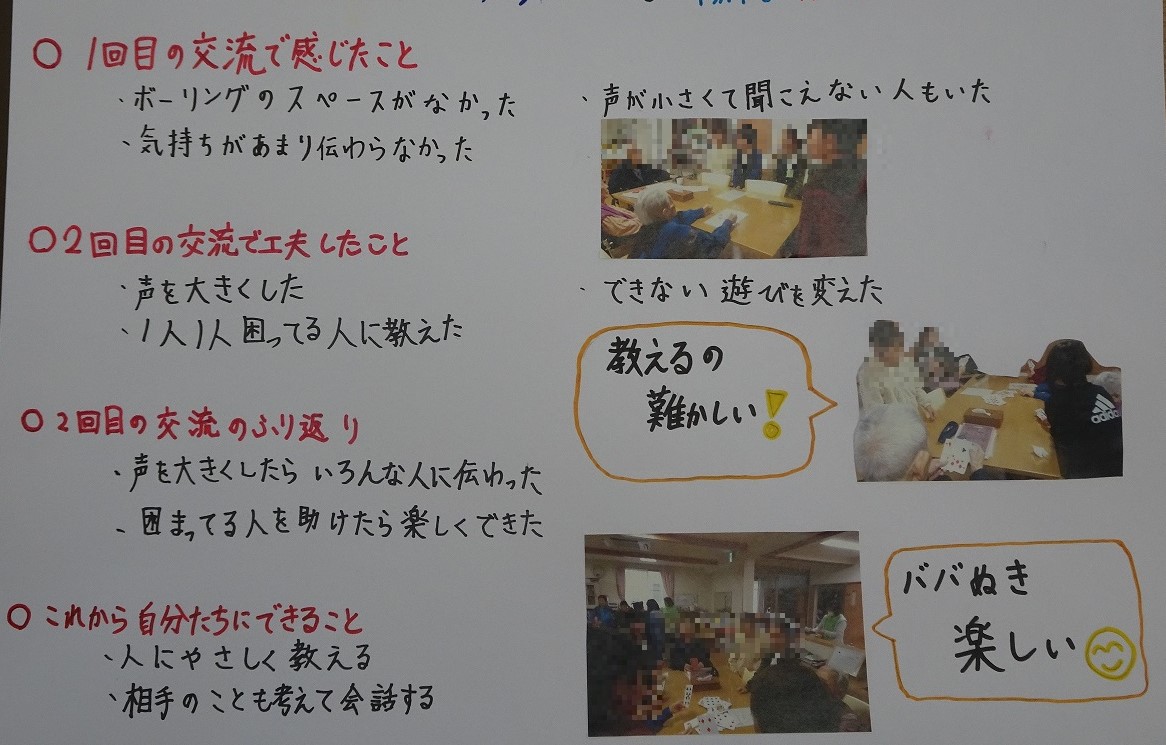 ○ 1回目の交流で感じたこと
・ボーリングのスペースがなかった
・声が小さくて聞こえない人もいた
・気持ちがあまり伝わらなかった
○2回目の交流で工夫したこと
・声を大きくした
・できない遊びを変えた
・1人1人困ってる人に教えた
教えるの
難かしい!
adidas
○2回目の交流のふり返り
・声を大きくしたらいろんな人に伝わった
・困まってる人を助けたら楽しくできた
○これから自分たちにできること
・人にやさしく教える
・相手のことも考えて会話する
ババぬき
楽しい